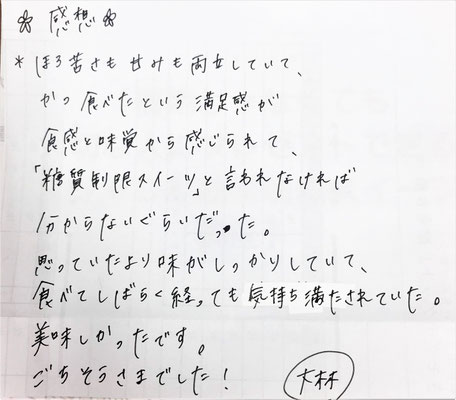 ✿ 感想 ✿
* ほろ苦さも甘みも両立していて、
かつ食べたという満足感が
食感と味覚から感じられて、
「糖質制限スイーツ」と言われなければ
分からないぐらいだった。
思っていたより味がしっかりしていて、
食べてしばらく経っても気持ち満たされていた。
美味しかったです。
ごちそうさまでした!
大林